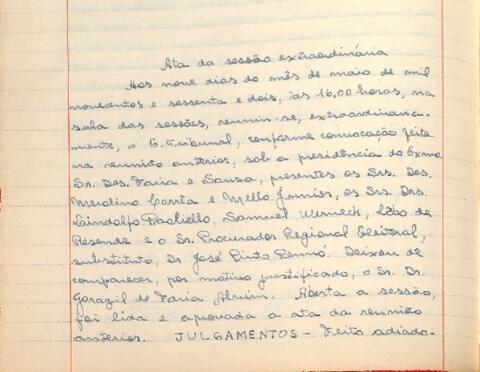 Ata da sessão extraordinária
Aos nove dias do mês de maio de mil
novecentos e sessenta e dois, às 16,00 horas, na
sala das sessões, reuniu-se, extraordinaria-
mente, o E. Tribunal, conforme convocação feita
na reunião anterior, sob a presidência do Exmo
Sr. Des. Faria e Sousa, presentes os Srs. Des.
Merolino Corrêa e Mello Junior, os Srs. Drs.
Lindolfo Paoliello, Samuel Werneck, Lobo de
Resende e o Sr. Procurador Regional Eleitoral,
substituto, Dr. José Pinto Rennó. Deixou de
comparecer, por motivo justificado, o Sr. Dr.
Gorazil de Faria Alvim. Aberta a sessão,
foi lida e aprovada a ata da reunião
anterior. JULGAMENTOS - Feito adiado-